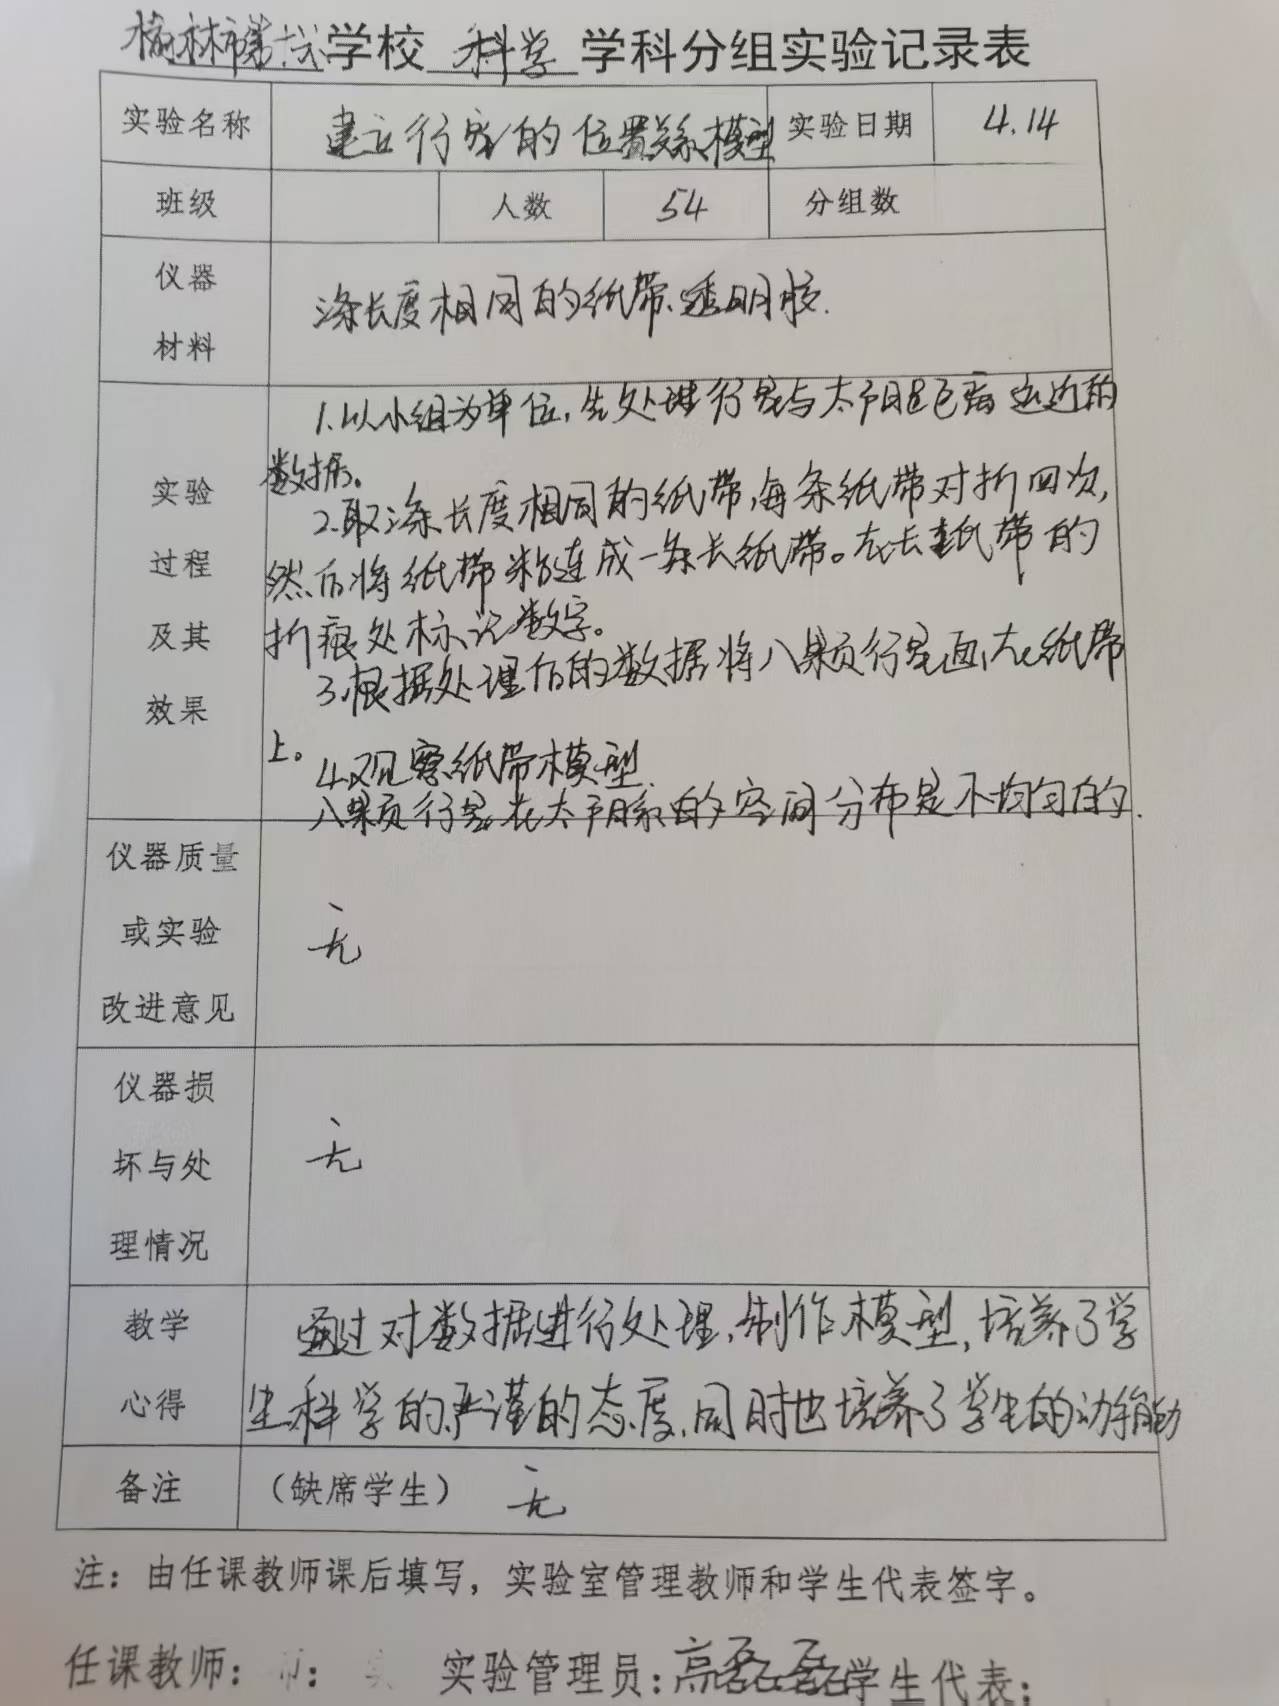 榆林市第十六学校 科学 学科分组实验记录表
实验名称 建立行星的位置关系模型 实验日期 4.14
班级 人数 54 分组数
仪器
材料
条长度相同的纸带、透明胶.
实验
过程
及其
效果
1.以小组为单位,先处理行星与太阳距离远近的
数据。
2.取条长度相同的纸带,每条纸带对折四次,
然后将纸带粘连成一条长纸带。在长纸带的
折痕处标记数字。
3.根据处理后的数据将八颗行星画在纸带
上。
4.观察纸带模型
八颗行星在太阳系的空间分布是不均匀的.
仪器质量
或实验
改进意见
无
仪器损
坏与处
理情况
无
教学
心得
通过对数据进行处理,制作模型,培养了学
生科学的严谨的态度,同时也培养了学生的动手能力
备注 (缺席学生) 无
注：由任课教师课后填写，实验室管理教师和学生代表签字。
任课教师： 实验管理员：高磊磊 学生代表：